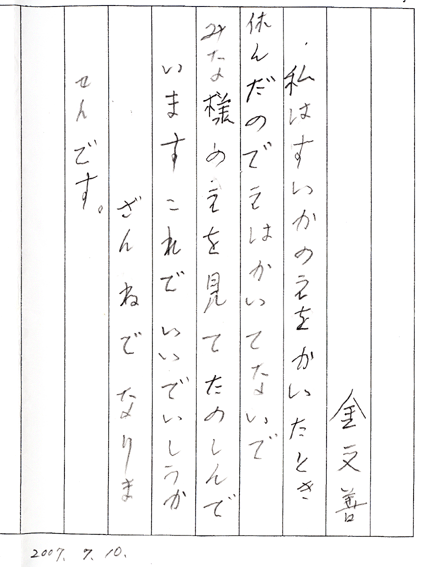 金文善
私はすいかのえをかいたとき
休んだのでえはかいてないで
みな様のえを見てたのしんで
いますこれでいいでいしうか
ざんねでなりま
せんです。
2007. 7. 10.